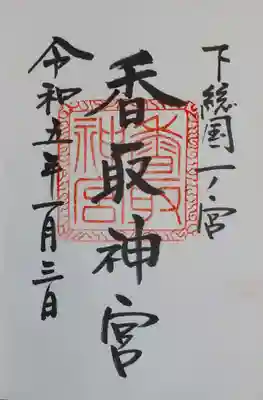 下総国一ノ宮
香取神宮
香取
神宮
令和五年一月三日